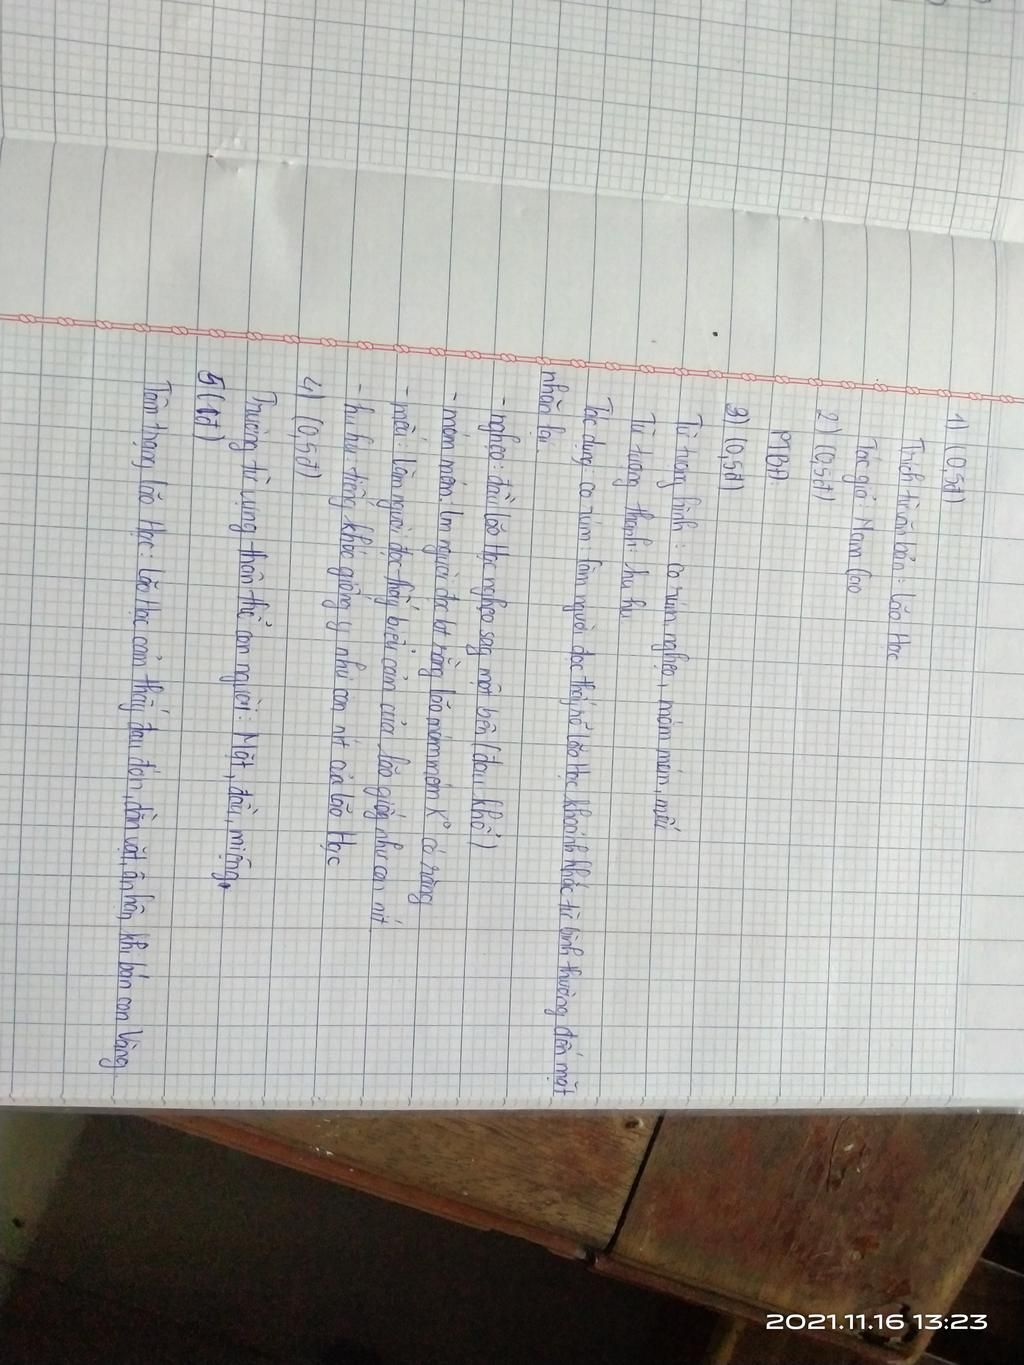 1) (0,5đ)
Trích từ văn bản: Lão Hạc
Tác giả: Nam Cao
2) (0,5đ)
PTBĐ:
3) (0,5đ)
Từ tượng hình: co rúm, nghẹo, móm mém, mếu
Từ tượng thanh: hu hu
Tác dụng: co rúm: làm người đọc thấy lão Hạc khoảnh khắc từ bình thường đến mặt
nhăn lại.
- nghẹo: đầu lão Hạc nghẹo sang một bên (đau khổ)
- móm mém: người đọc bt rằng lão móm mém k° có răng
- mếu: làm người đọc thấy biểu cảm của lão giống như con nít.
- hu hu: tiếng khóc giống y như con nít của lão Hạc
4) (0,5đ)
Trường từ vựng thân thể con người: Mặt, đầu, miệng.
5 (1đ)
Tâm trạng lão Hạc: lão Hạc cảm thấy đau đớn, dằn vặt, ân hận khi bán con Vàng.
2021.11.16 13:23